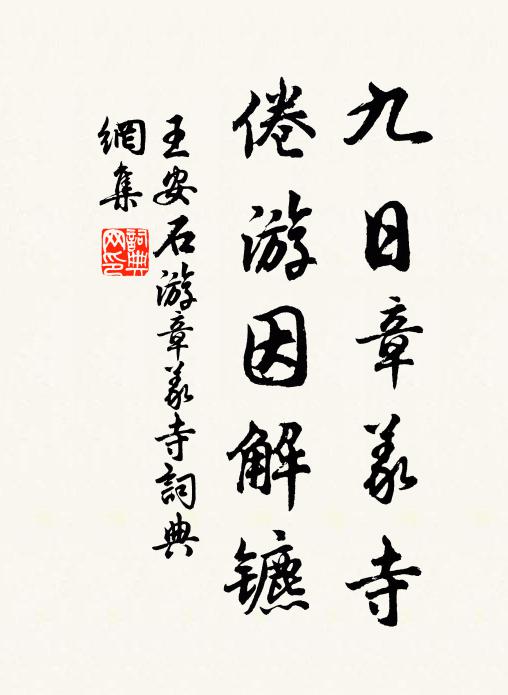 九日章義寺
倦游因解镳
王安石游章義寺詞典
網集
詞典
网印